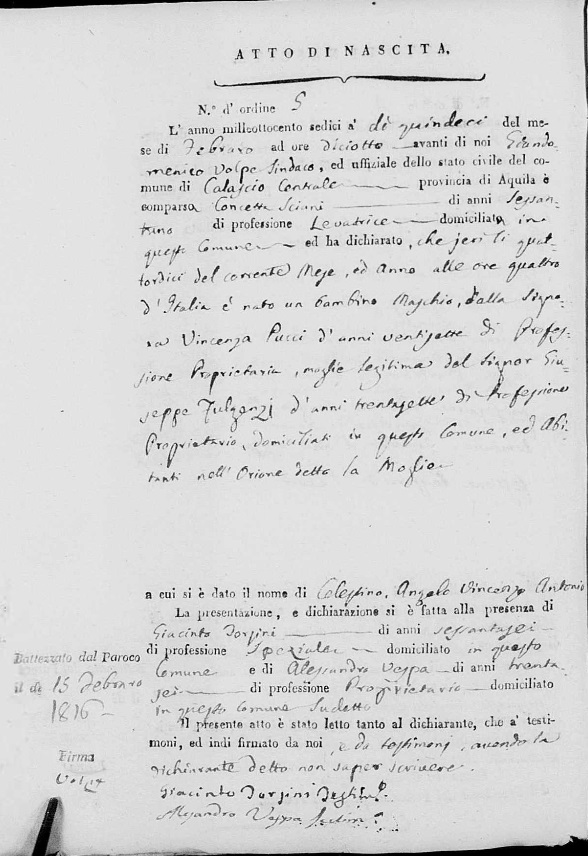 ATTO DI NASCITA.
N.º d' ordine 5
L' anno milleottocento sedici a' dì quindeci del me-
se di Febraro ad ore diciotto avanti di noi Giando-
menico Volpe Sindaco, ed uffiziale dello stato civile del co-
mune di Calascio Contrale provincia di Aquila è
comparsa Concetta Sciani di anni sessan-
tuno di professione Levatrice domiciliata in
questo Comune ed ha dichiarato, che jeri li quat-
tordici del corrente Mese, ed Anno alle ore quattro
d' Italia é nato un bambino Maschio, dalla Signo-
ra Vincenza Pucci d' anni ventisette di Profes-
sione Proprietaria, moglie legitima del Signor Giu-
seppe Fulgenzj d' anni trentasette di Professione
Proprietario, domiciliati in questo Comune, ed Abi-
tanti nell' Orione detto la Moglia
a cui si è dato il nome di Celestino, Angelo Vincenzo Antonio
La presentazione, e dichiarazione si è fatta alla presenza di
Giacinto Dorsini di anni sessantasei
di professione Speziale domiciliato in questo
Comune e di Alessandro Vespa di anni trenta
sei di professione Proprietario domiciliato
in questo Comune sudetto
Il presente atto è stato letto tanto al dichiarante, che a' testi-
moni, ed indi firmato da noi, e da testimonj, avendo la
dichiarante detto non saper scrivere.
Giacinto Dorsini
Alesandro Vespa
Battezzato dal Paroco
il dì 15 Febraro
1816
Firma
Volpe